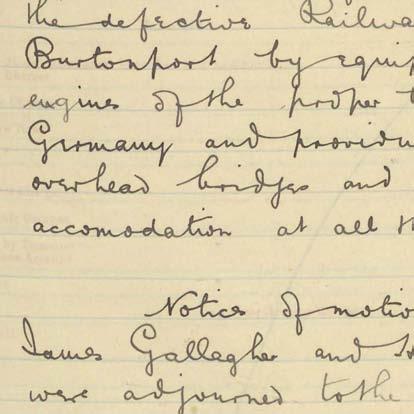 the defective Railwa
Burtonport by equip
engines of the proper t
Germany and providin
overhead bridges and
accomodation at all th
Notices of motio
James Gallagher and
were adjourned to the